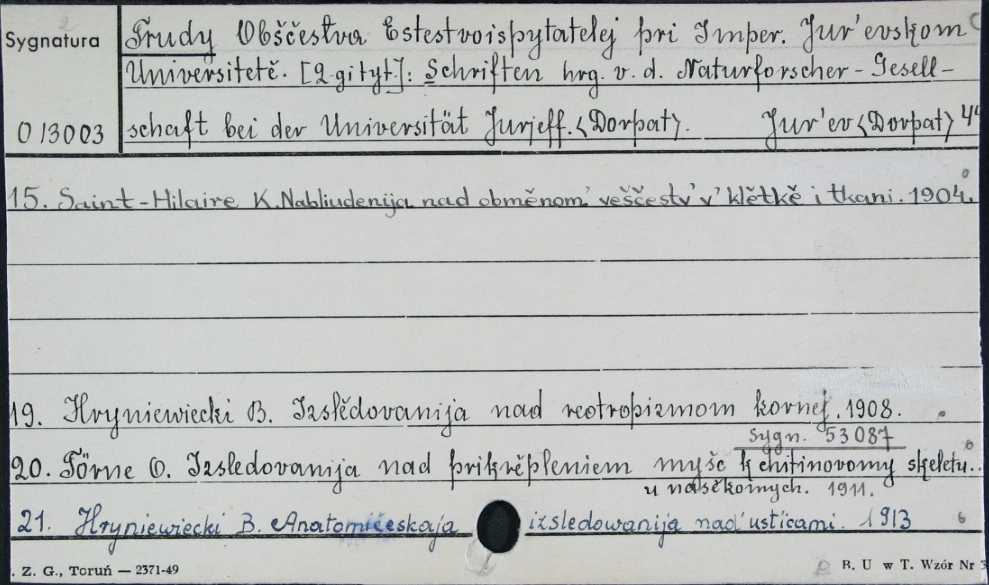 Sygnatura
013003
Trudy Obščestva Estestvoispytatelej pri Imper. Jur'evskom
Universitetě. [2 gi tyt]: Schriften hrg. v. d. Naturforscher-Gesell-
schaft bei der Universität Jurjeff.<Dorpat>. Jur'ev<Dorpat> 44
15. Saint-Hilaire K. Nabliudenija nad obměnom' veščestv' v' klětkě i tkani. 1904.
19. Hryniewiecki B. Izslědovanija nad reotropizmom kornej. 1908.
sygn. 53087
20. Törne O. Izsledovanija nad prikrěpleniem myšc k chitinovomy skeletu..
u nasěkomych. 1911.
21. Hryniewiecki B. Anatomičeskaja izsledowanija nad' usticami. 1913
. Z. G., Toruń — 2371-49
B. U w T. Wzór Nr 3